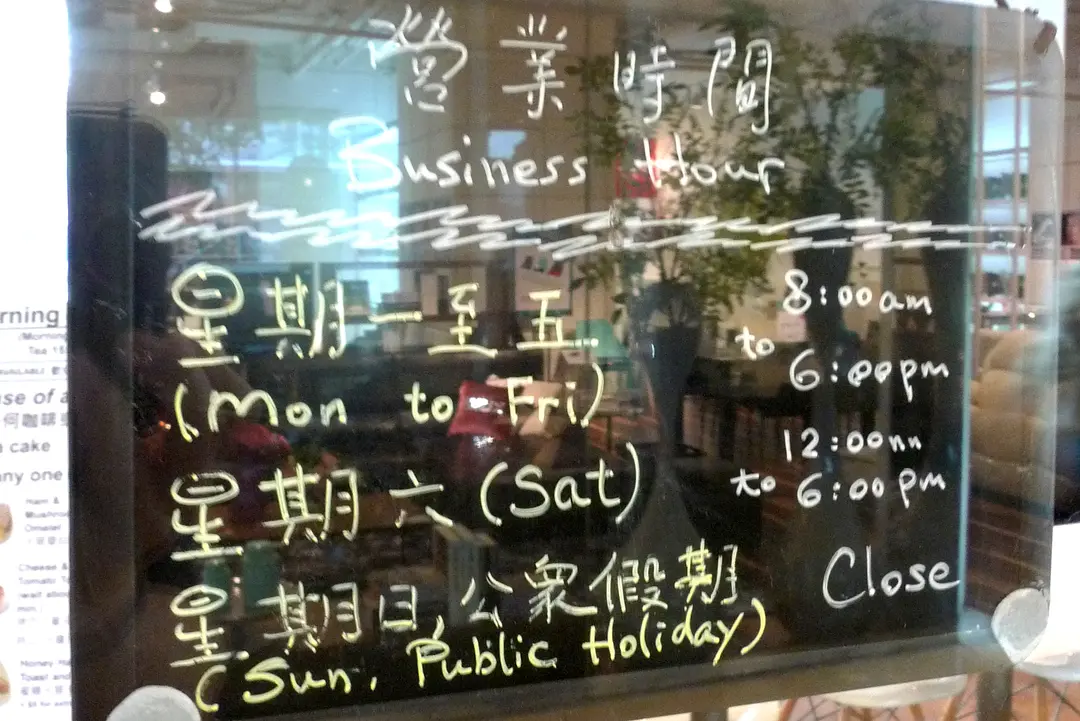 營業時間
Business Hour
星期一至五
(Mon to Fri)
8:00am
to
6:00pm
星期六 (Sat)
12:00nn
to 6:00pm
星期日,公衆假期
(Sun, Public Holiday)
Close
rning
Morning
Tea
se of a
何咖啡
cake
ny one
Ham &
Mushroo
Omelet
Cheese &
Tomato
Honey
Toast and